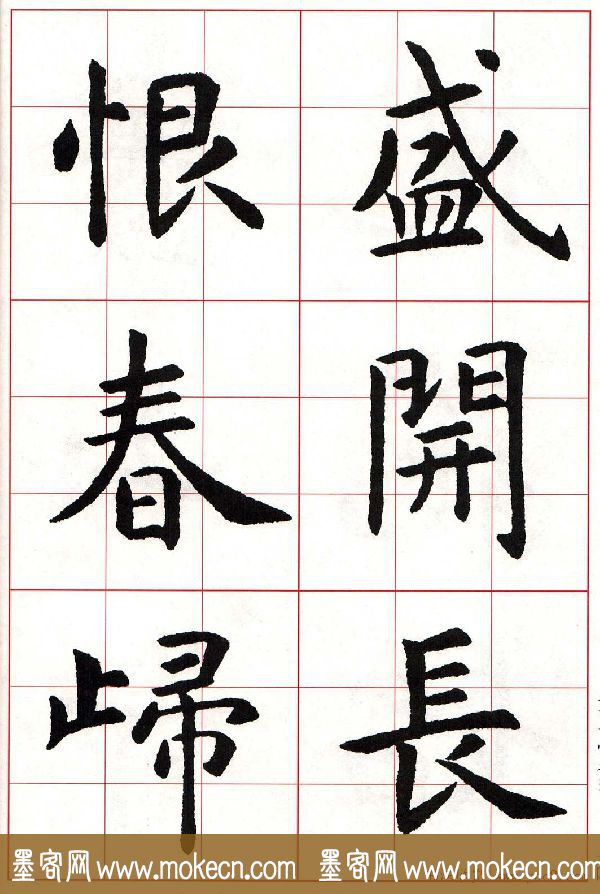 盛開長
恨春㱕
墨客网 www.mokecn.com 墨客网 www.mokecn.com